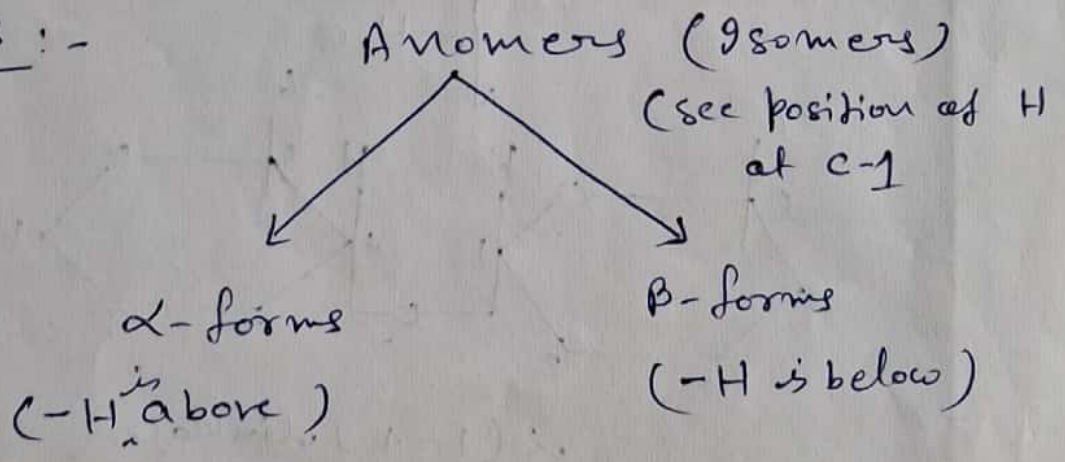 :-
Anomers (Isomers)
(see position of H
at C-1
α-forms
β-forms
(-H is above)
(-H is below)